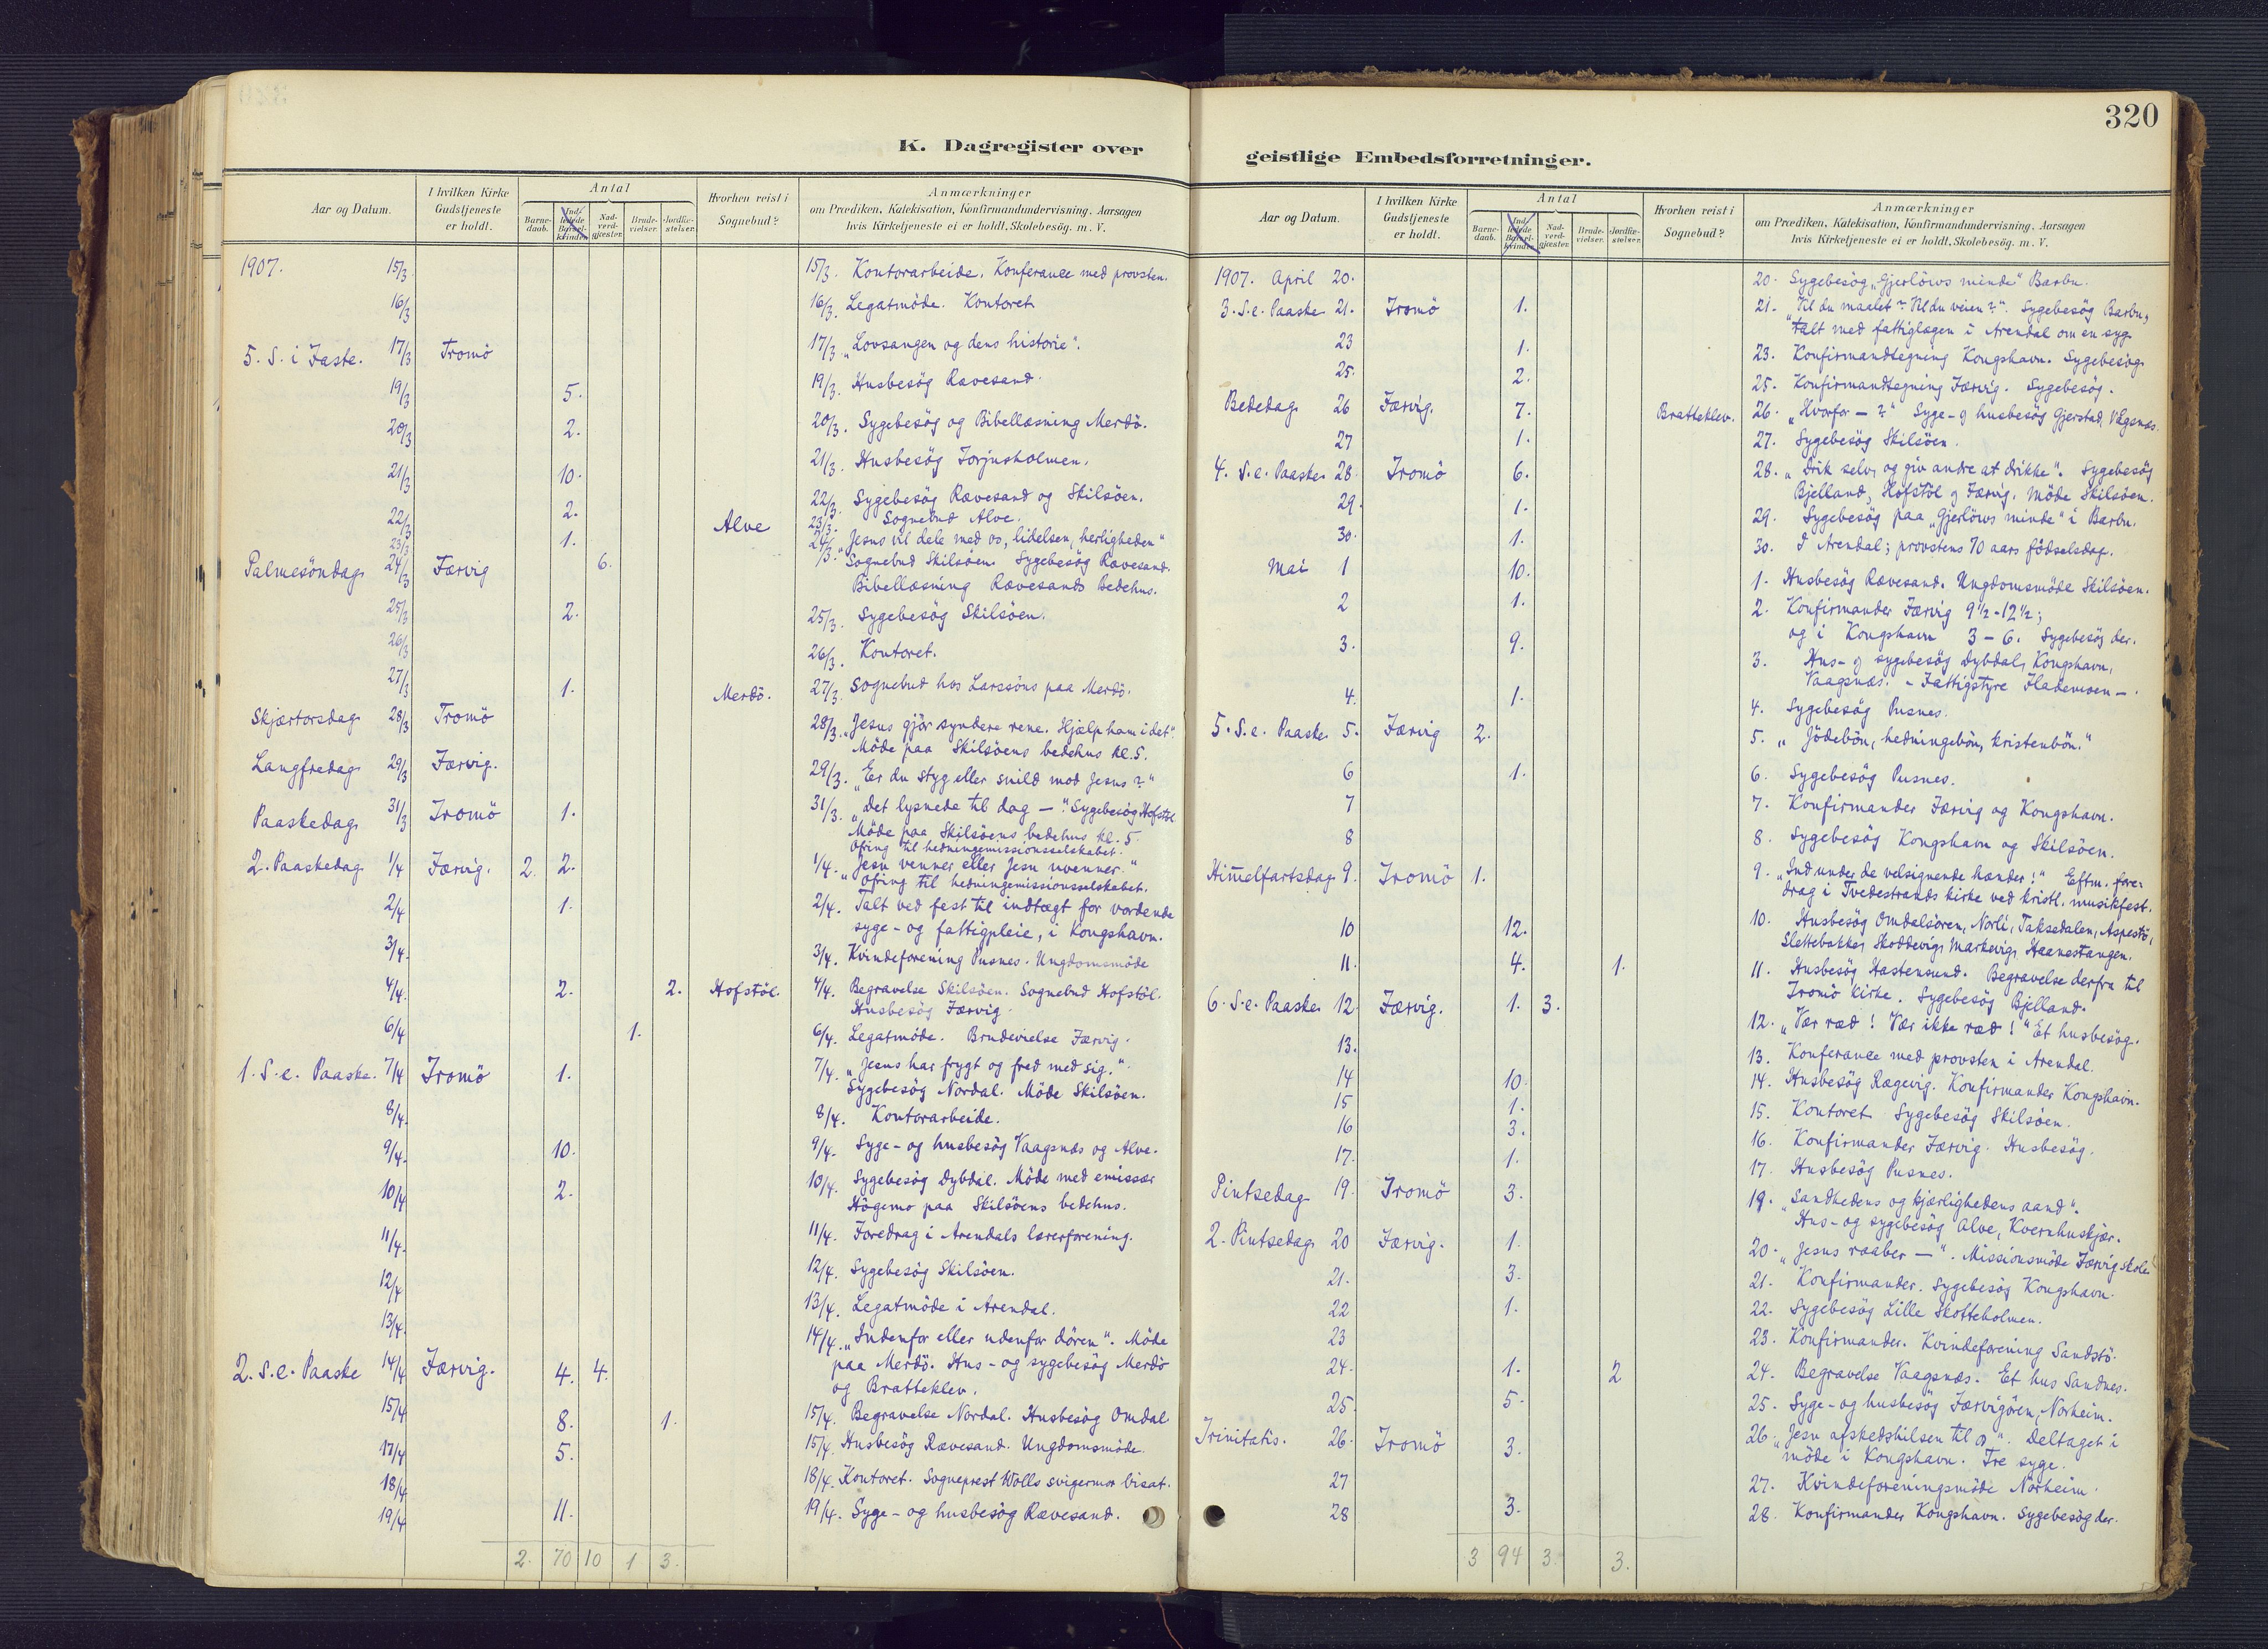 320
K. Dagregister over
Aar og Datum.
I hvilken Kirke Gudstjeneste er holdt.
Antal
Barne-daab.
Ind-ledede Barsel-kvinder.
Nad-verd-gjæster.
Brude-vielser.
Jordfæ-stelser.
Hvorhen reist i Sognebud?
Anmærkninger
om Prædiken, Katekisation, Konfirmandundervisning. Aarsagen
hvis Kirketjeneste ei er holdt, Skolebesøg. m. V.
1907. 15/3. 15/3. Kontorarbeide. Konferance med provsten.
16/3 16/3. Legatmöde. Kontoret.
5. S. i Faste. 17/3 Tromö 17/3. „Lovsangen og dens historie".
19/3 5. 19/3. Husbesög Rævesand.
20/3 2. 20/3. Sygebesög og Bibellæsning Merdö.
21/3 10. 21/3. Husbesög Torjusholmen.
22/3 2. 22/3. Sygebesög Rævesand og Skilsöen.
23/3 1. Alve 23/3. Sognebud Alve.
Palmesöndag 24/3 Færvig 6. 24/3. „Jesus vil dele med os, lidelsen, herligheden"
Sognebud Skilsöen. Sygebesög Rævesand.
Bibellæsning Rævesands bedehus.
25/3 2. 25/3. Sygebesög Skilsöen.
26/3 26/3. Kontoret.
27/3 1. Merdö. 27/3. Sognebud hos Larssöns paa Merdö.
Skjærtorsdag 28/3 Tromö 28/3. „Jesus gjör syndere rene. Hjælp ham i det".
Möde paa Skilsöens bedehus kl. 5.
Langfredag 29/3 Færvig. 29/3. „Er du styg eller snild mod Jesus?"
Paaskedag 31/3 Tromö 1. 31/3. „Det lysnede til dag —". Sygebesög Hofstöl
Möde paa Skilsöens bedehus kl. 5.
Ofring til hedningemissionsselskabet.
2. Paaskedag 1/4 Færvig. 2. 2. 1/4. „Jesu venner eller Jesu uvenner."
Ofring til hedningemissionsselskabet.
2/4 1. 2/4. Talt ved fest til indtægt for vordende
syge- og fattigpleie, i Kongshavn.
3/4. 3/4. Kvindeforening Pusnes. Ungdomsmöde
4/4. 2. 2. Hofstöl. 4/4. Begravelse Skilsöen. Sognebud Hofstöl.
Husbesög Færvig.
6/4 1. 6/4. Legatmöde. Brudevielse Færvig.
1. S. e. Paaske. 7/4 Tromö 1. 7/4. „Jesus har frygt og fred med sig."
Sygebesög Nordal. Möde Skilsöen.
8/4. 8/4. Kontorarbeide.
9/4. 10. 9/4. Syge- og husbesög Vaagsnæs og Alve.
10/4 2. 10/4. Sygebesög Dybdal. Möde med emissær
Högemo paa Skilsöens bedehus.
11/4. 11/4. Foredrag i Arendals lærerforening.
12/4 12/4. Sygebesög Skilsöen.
13/4. 13/4. Legatmöde i Arendal.
14/4. „Indenfor eller udenfor dören". Möde
2. S. e. Paaske 14/4 Færvig. 4. 4. paa Merdö. Hus- og sygebesög Merdö
og Bratteklev.
15/4 8. 1. 15/4. Begravelse Nordal. Husbesög Omdal
17/4 5. 15/4. Husbesög Rævesand. Ungdomsmöde.
18/4 18/4. Kontoret. Sogneprest Wolls svigermor bisat.
19/4 11. 19/4. Syge- og husbesög Rævesand.
2. 70 10 1 3.
geistlige Embedsforretninger.
Aar og Datum.
I hvilken Kirke Gudstjeneste er holdt.
Antal
Barne-daab.
Ind-ledede Barsel-kvinder.
Nad-verd-gjæster.
Brude-vielser.
Jordfæ-stelser.
Hvorhen reist i Sognebud?
Anmærkninger
om Prædiken, Katekisation, Konfirmandundervisning. Aarsagen
hvis Kirketjeneste ei er holdt, Skolebesøg. m. V.
1907. April 20. 20. Sygebesög „Gjerlöws minde" Barbu.
3. S. e. Paaske 21. Tromö 1. 21. „Vil du maalet? Vil du veien?". Sygebesög Barbu,
talt med fattiglægen i Arendal om en syg
23 1. 23. Konfirmandtegning Kongshavn. Sygebesög
25. 2. 25. Konfirmandtegning Færvig. Sygebesög.
Bededag 26 Færvig. 7. Bratteklev. 26. „Hvorfor —?" Syge- og husbesög Gjerstad, Vågsnæs.
27 1. 27. Sygebesög Skilsöen.
4. S. e. Paaske 28. Tromö 6. 28. „Drik selv, og giv andre at drikke". Sygebesög
Bjelland, Hofstöl og Færvig. Möde Skilsöen.
29. 1. 29. Sygebesög paa „Gjerlöws minde" i Barbu.
30. 1. 30. I Arendal; provstens 70 aars födselsdag.
Mai 1 10. 1. Husbesög Rævesand. Ungdomsmöde Skilsöen.
2 1. 2. Konfirmander Færvig 9½-12½;
og i Kongshavn 3-6. Sygebesög der.
3. 9. 3. Hus- og sygebesög Dybdal, Kongshavn,
Vaagsnæs. - Fattigstyre Flademoen -.
4. 1. 4. Sygebesög Pusnes.
5. S. e. Paaske 5. Færvig 2. 5. „Jödebön, hedningebön, kristenbön."
6 1. 6. Sygebesög Pusnes.
7 7. Konfirmander Færvig og Kongshavn.
8 8. Sygebesög Kongshavn og Skilsöen.
Himmelfartsdag 9. Tromö 1. 9. „Ind under de velsignende hænder!" Eftm. fore-
drag i Tvedestrands kirke ved kristl. musikfest.
10 12. 10. Husbesög Omdalsören, Norli, Taksedalen, Aspestö,
Slettebakke, Skoddevig, Markevig, Haanestangen.
11. 4. 1. 11. Husbesög Hastensund. Begravelse derfra til
Tromö kirke. Sygebesög Bjelland.
6. S. e. Paaske 12 Færvig. 1. 3. 12. „Vær ræd! Vær ikke ræd!" Et husbesög.
13. 13. Konferance med provsten i Arendal.
14 10. 14. Husbesög Rægevig. Konfirmander Kongshavn.
15 1. 15. Kontoret. Sygebesög Skilsöen.
16 3. 16. Konfirmander Færvig. Husbesög.
17. 1. 17. Husbesög Pusnes.
Pintsedag 19. Tromö 3. 19. „Sandhedens og kjærlighedens aand".
Hus- og sygebesög Alve, Kvernhuskjær.
2. Pintsedag 20 Færvig. 1. 20. „Jesus raaber —". Missionsmöde Færvig skole
21. 3. 21. Konfirmander. Sygebesög Kongshavn.
22 1. 22. Sygebesög Lille Skotteholmen.
23 23. Konfirmander. Kvindeforening Sandstö.
24. 1. 2 24. Begravelse Vaagsnæs. Et hus Sandnes.
25. 5. 25. Syge- og husbesög Færvigören, Norheim.
Trinitatis. 26. Tromö 3. 26. „Jesu afskedshilsen til os". Deltaget i
möde i Kongshavn. Tre syge.
27 27. Kvindeforeningsmöde Norheim.
28 3. 28. Konfirmander Kongshavn. Sygebesög der.
3 94 3. 3.